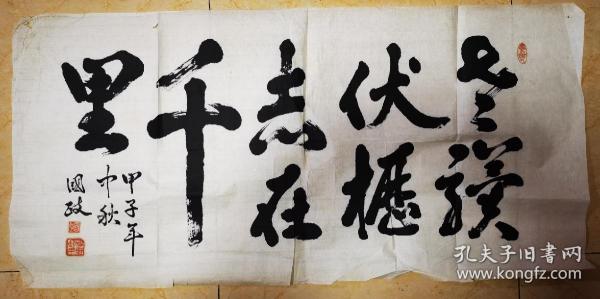 老骥
伏枥
志在
千
里
甲子年
中秋
國政
孔夫子旧书网
www.kongfz.com